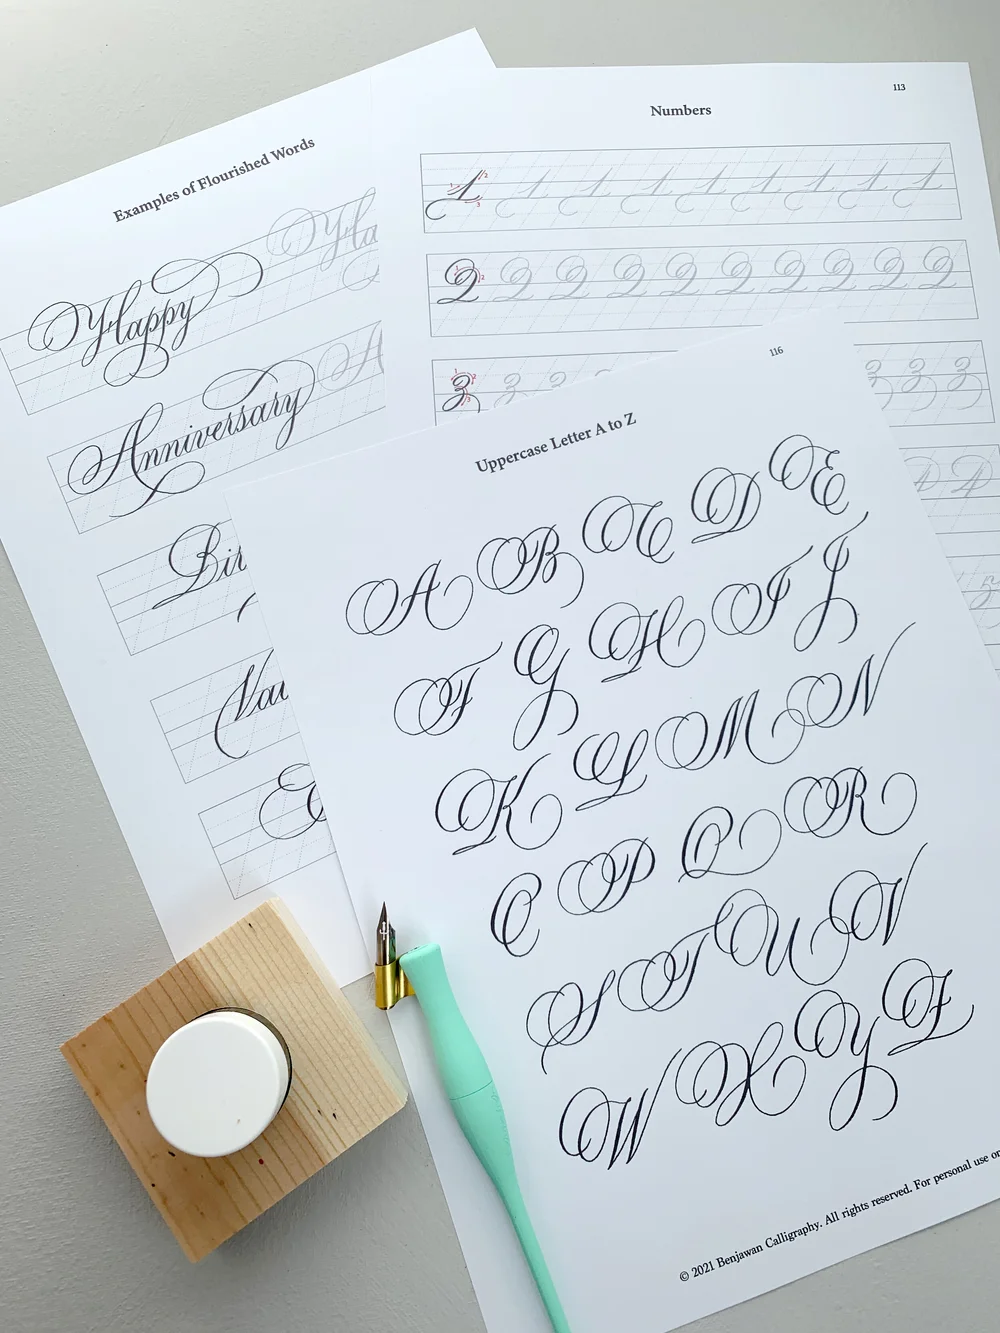 Examples of Flourished Words
Happy Ha
Anniversary A
Bir
Val
113
Numbers
1 1 1 1 1 1 1 1 1
2 2 2 2 2 2 2 2 2 2
3 3 3 3 3 3
4 4
5
116
Uppercase Letter A to Z
A B C D E
F G H I J
K L M N
O P Q R
S T U V
W X Y Z
© 2021 Benjawan Calligraphy. All rights reserved. For personal use on